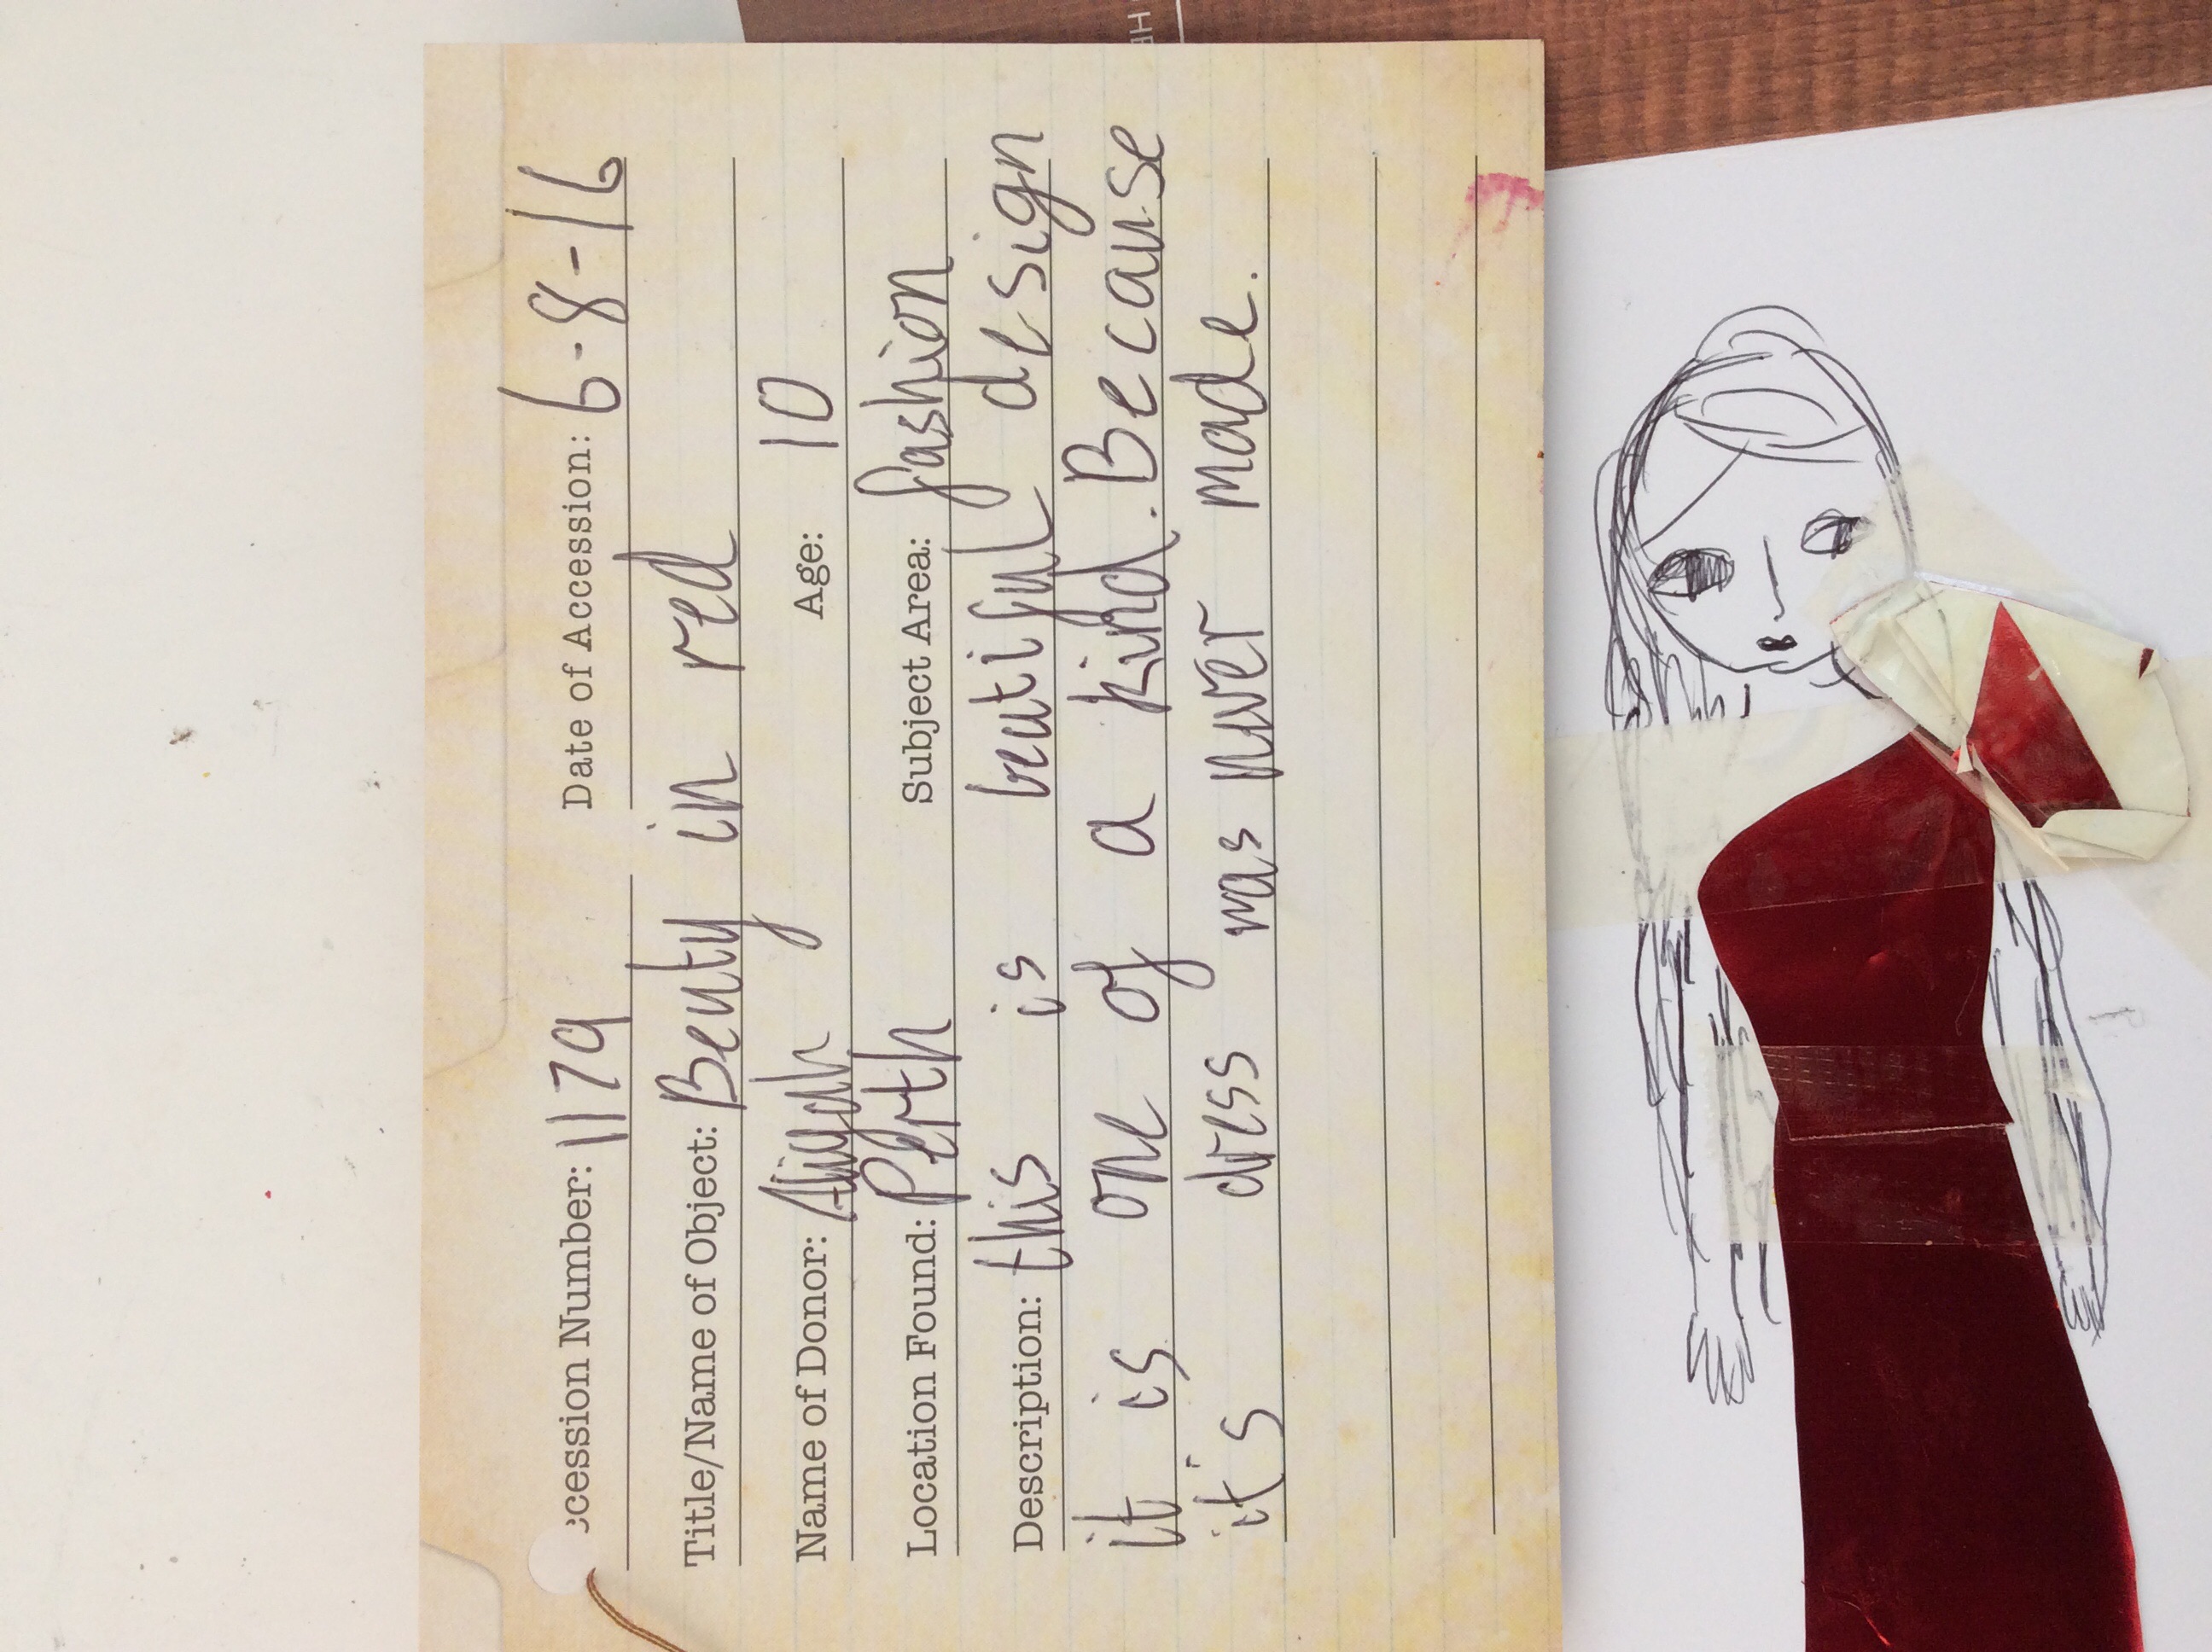 ccession Number: 1179 Date of Accession: 6-8-16
Title/Name of Object: Beuty in red
Name of Donor: Aliyah Age: 10
Location Found: Perth Subject Area: fashion
Description: this is beutiful design
it is one of a kind. Because
it's dress was never made.